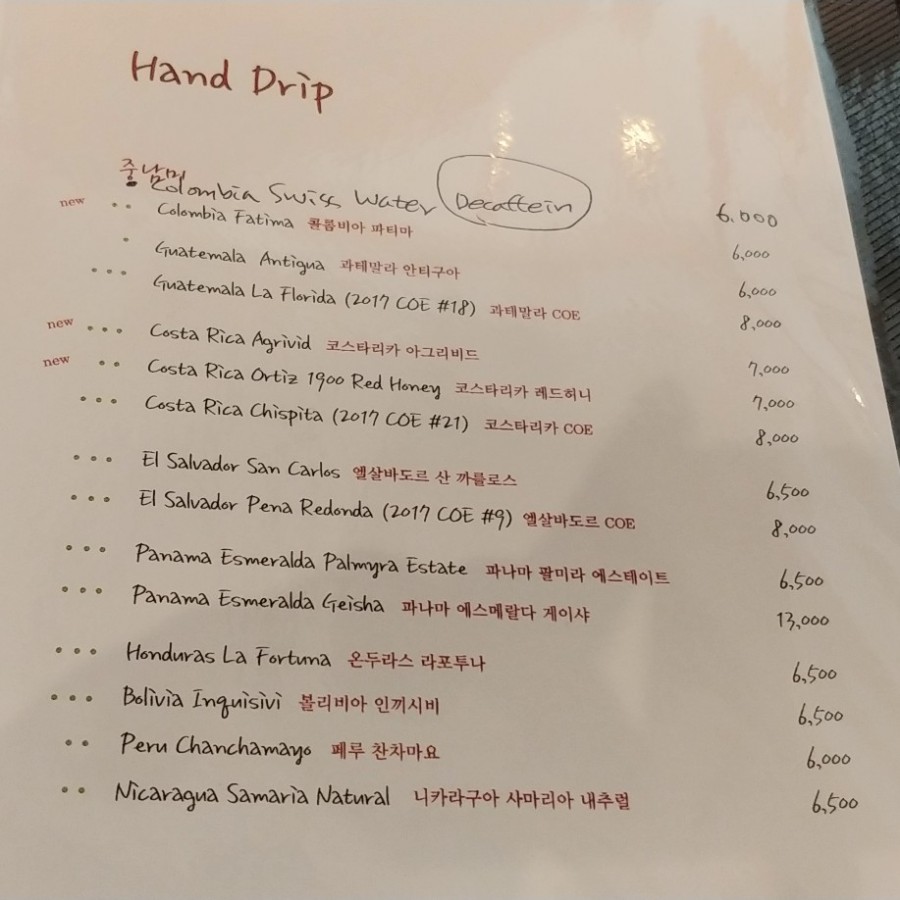 Hand Drip
중남미
Colombia Swiss Water Decaffein 6.000
new •• Colombia Fatima 콜롬비아 파티마 6,000
• Guatemala Antigua 과테말라 안티구아 6,000
••• Guatemala La Florida (2017 COE #18) 과테말라 COE 8,000
new ••• Costa Rica Agrivid 코스타리카 아그리비드 7,000
new •• Costa Rica Ortiz 1900 Red Honey 코스타리카 레드허니 7,000
••• Costa Rica Chispita (2017 COE #21) 코스타리카 COE 8,000
••• El Salvador San Carlos 엘살바도르 산 까를로스 6,500
••• El Salvador Pena Redonda (2017 COE #9) 엘살바도르 COE 8,000
••• Panama Esmeralda Palmyra Estate 파나마 팔미라 에스테이트 6,500
••• Panama Esmeralda Geisha 파나마 에스메랄다 게이샤 13,000
••• Honduras La Fortuna 온두라스 라포투나 6,500
••• Bolivia Inquisivi 볼리비아 인끼시비 6,500
•• Peru Chanchamayo 페루 찬차마요 6,000
•• Nicaragua Samaria Natural 니카라구아 사마리아 내추럴 6,500